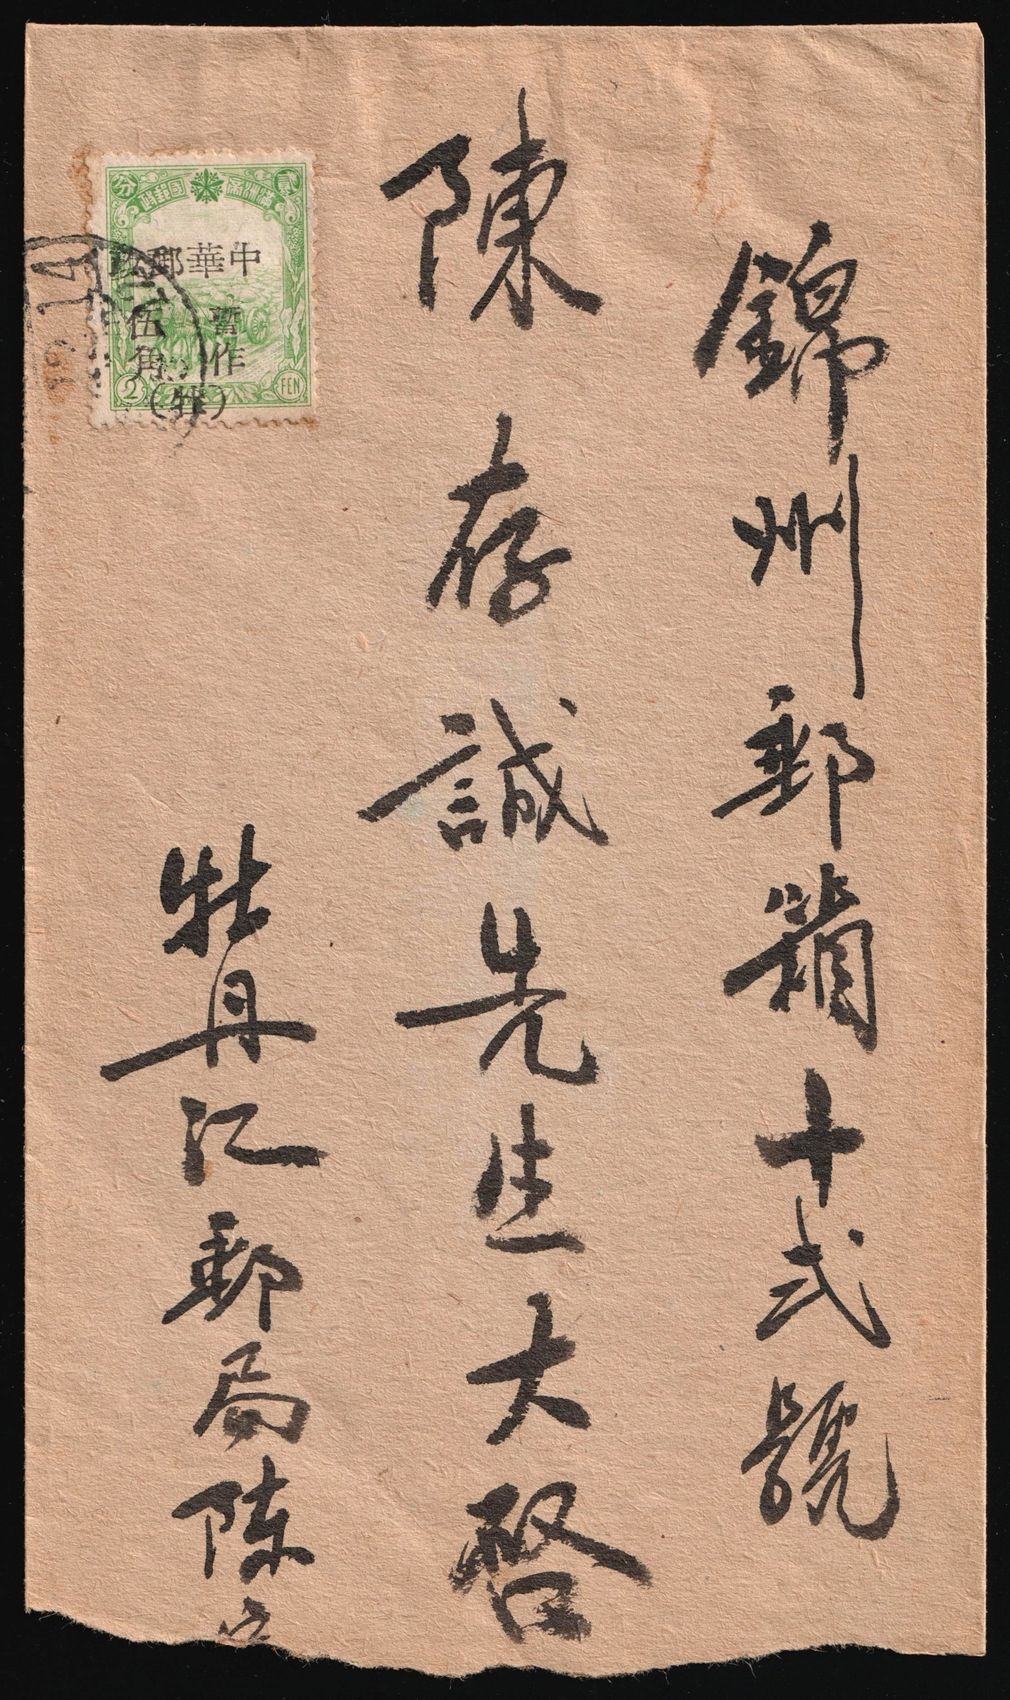 錦州郵箱十弍號
陳存誠先生大啓
牡丹江郵局陈
貳 滿洲國郵政 分
中華郵政
暫作
伍角
(牡)
2 FEN
14